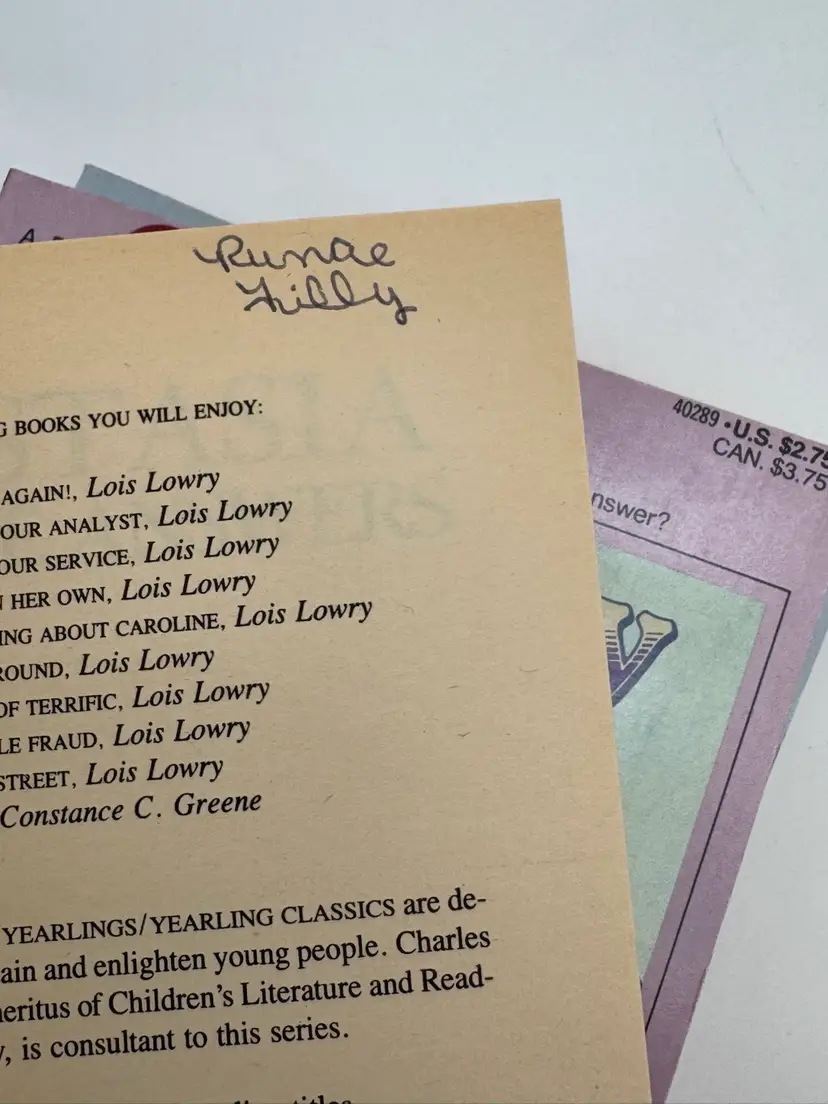 A
Runae
Filly
G BOOKS YOU WILL ENJOY:
AGAIN!, Lois Lowry
OUR ANALYST, Lois Lowry
OUR SERVICE, Lois Lowry
N HER OWN, Lois Lowry
ING ABOUT CAROLINE, Lois Lowry
ROUND, Lois Lowry
OF TERRIFIC, Lois Lowry
LE FRAUD, Lois Lowry
STREET, Lois Lowry
Constance C. Greene
YEARLINGS/YEARLING CLASSICS are de-
ain and enlighten young people. Charles
meritus of Children's Literature and Read-
y, is consultant to this series.
40289 • U.S. $2.75
CAN. $3.75
nswer?